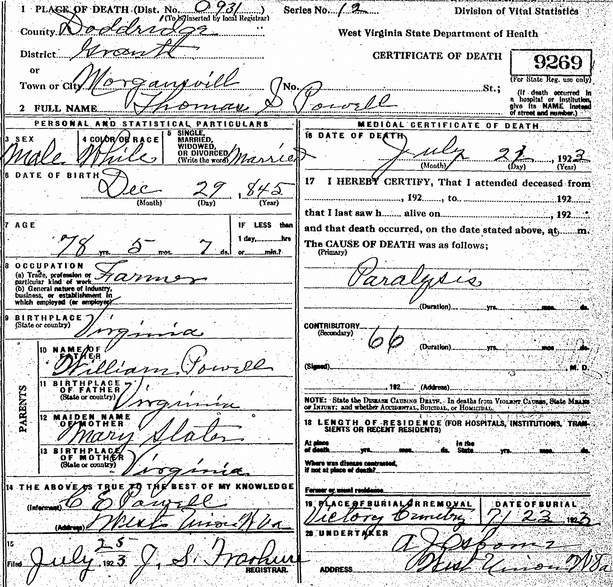 1 PLACE OF DEATH (Dist. No. 0931 Series No. 12 Division of Vital Statistics
(To be inserted by local Registrar)
County Doddridge West Virginia State Department of Health
District Grant CERTIFICATE OF DEATH 9269
or (For State Reg. use only)
Town or City Morgansvill No. St.; (If death occurred in a hospital or institution, give its NAME instead of street and number.)
2 FULL NAME Thomas S Powell
PERSONAL AND STATISTICAL PARTICULARS
3 SEX Male 4 COLOR OR RACE White 5 SINGLE, MARRIED, WIDOWED, OR DIVORCED (Write the word) Married
6 DATE OF BIRTH Dec 29, 845
(Month) (Day) (Year)
7 AGE IF LESS than
78 yrs. 5 mos. 7 ds. 1 day, hrs or min.?
8 OCCUPATION
(a) Trade, profession or particular kind of work Farmer
(b) General nature of industry, business, or establishment in which employed (or employer)
9 BIRTHPLACE Virginia
(State or country)
PARENTS
10 NAME OF FATHER William Powell
11 BIRTHPLACE OF FATHER Virginia
(State or country)
12 MAIDEN NAME OF MOTHER Mary Slater
13 BIRTHPLACE OF MOTHER Virginia
(State or country)
14 THE ABOVE IS TRUE TO THE BEST OF MY KNOWLEDGE
(Informant) C E Powell
(Address) West Union W Va
15
Filed July 25 1923 J. S. REGISTRAR.
MEDICAL CERTIFICATE OF DEATH
16 DATE OF DEATH July 192
(Month) (Day) (Year)
17 I HEREBY CERTIFY, That I attended deceased from
, 192 , to , 192
that I last saw h alive on , 192
and that death occurred, on the date stated above, at m.
The CAUSE OF DEATH was as follows;
(Primary)
Paralysis
(Duration) yrs. mos. ds.
CONTRIBUTORY
(Secondary) 66
(Duration) yrs. mos. ds.
(Signed) M. D.
, 192 (Address)
NOTE: State the DISEASE CAUSING DEATH. In deaths from VIOLENT CAUSES, State MEANS OF INJURY; and whether ACCIDENTAL, SUICIDAL, OR HOMICIDAL.
18 LENGTH OF RESIDENCE (FOR HOSPITALS, INSTITUTIONS, TRANSIENTS OR RECENT RESIDENTS)
At place of death yrs. mos. ds. In the State yrs. mos. ds.
Where was disease contracted, if not at place of death?
Former or usual residence
19 PLACE OF BURIAL OR REMOVAL DATE OF BURIAL
Victory 7/23 1923
20 UNDERTAKER A J Osborne
ADDRESS West Union W Va